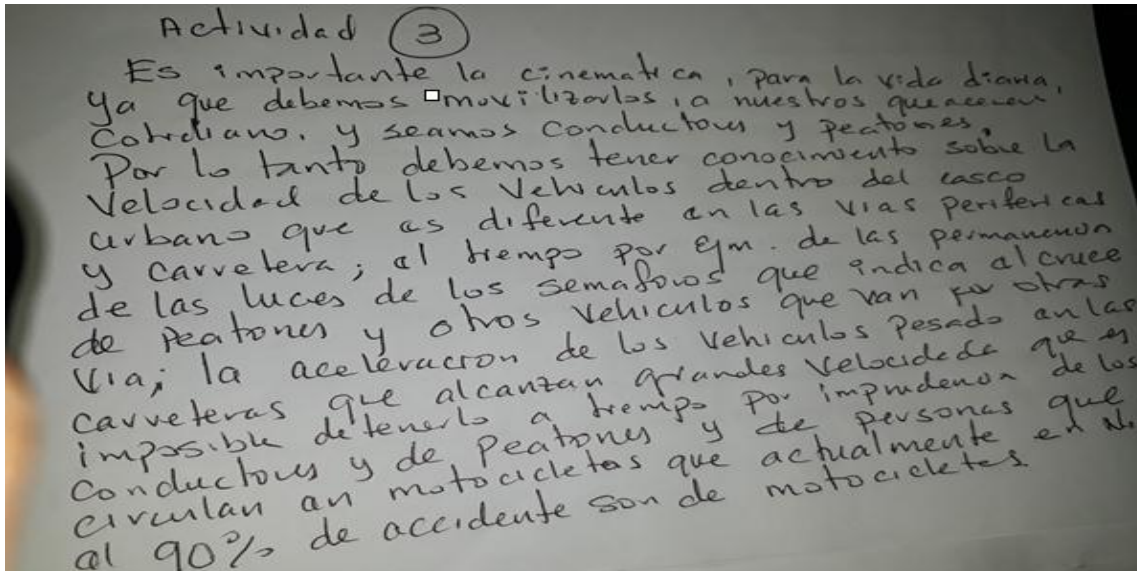 Actividad 3
Es importante la cinematica, para la vida diaria,
ya que debemos movilizarlos, a nuestros
Cotidiano. y seamos conductores y peatones.
Por lo tanto debemos tener conocimiento sobre la
Velocidad de los Vehiculos dentro del casco
urbano que es diferente en las vias perifericas
y carretera; el tiempo por ejm. de las
de las luces de los semaforos que indica el cruce
de Peatones y otros Vehiculos que van por otras
Via; la aceleracion de los Vehiculos Pesado en las
carreteras que alcanzan grandes Velocidade que es
imposible detenerlo a tiempo por imprudencia de los
Conductores y de Peatones y de personas que
circulan en motocicletas que actualmente en
el 90% de accidente son de motocicletas.